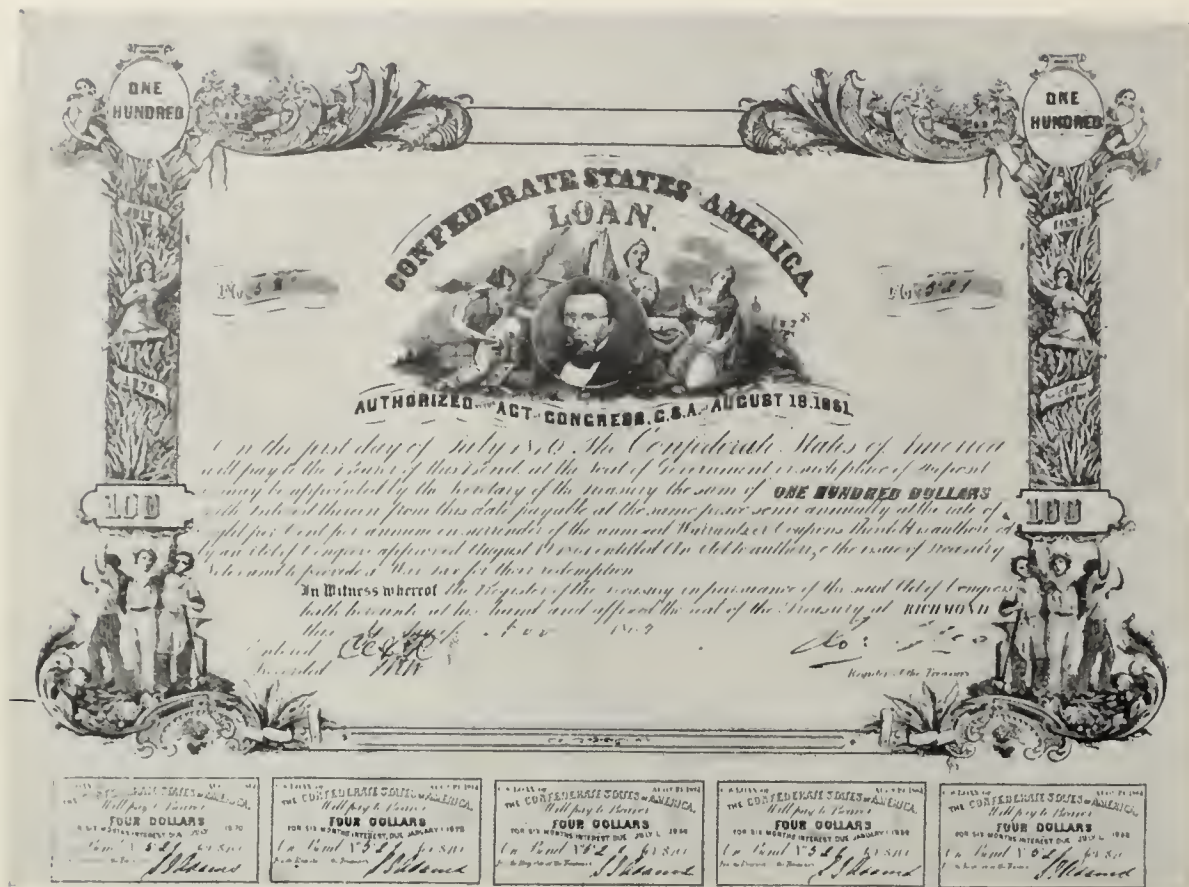 ONE HUNDRED
ONE HUNDRED
CONFEDERATE STATES AMERICA
LOAN.
JULY 1
1870
No 52
No 521
AUTHORIZED ACT CONGRESS, C.S.A. AUGUST 19. 1861
On the first day of July 187 The Confederate States of America
will pay to the Bearer of this Bond, at the seat of Government or such place of deposit
may be appointed by the Secretary of the treasury the sum of ONE HUNDRED DOLLARS
with Interest thereon from this date payable at the same place semi annually at the rate of
eight per Cent per annum on surrender of the annexed Warrants or Coupons This Bond is authorized
by an Act of Congress approved August 19 1861 entitled An Act to authorize the issue of treasury
Notes and to provide a War tax for their redemption
In Witness whereof the Register of the treasury in pursuance of the said Act of Congress
hath hereunto set his hand and affixed the seal of the Treasury at RICHMOND
this
Entered
Recorded
Register of the Treasury
100
100
THE CONFEDERATE STATES OF AMERICA,
Will pay to Bearer
FOUR DOLLARS
SIX MONTHS INTEREST DUE JULY 1870
On Bond No 521 for $100
THE CONFEDERATE STATES OF AMERICA,
Will pay to Bearer
FOUR DOLLARS
FOR SIX MONTHS INTEREST, DUE JANUARY 1 1870
On Bond No 521 for $100
THE CONFEDERATE STATES OF AMERICA,
Will pay to Bearer
FOUR DOLLARS
FOR SIX MONTHS INTEREST DUE JULY 1,
On Bond No 521 for $100
THE CONFEDERATE STATES OF AMERICA,
Will pay to Bearer
FOUR DOLLARS
FOR SIX MONTHS INTEREST, DUE JANUARY 1
On Bond No 521 for $100
THE CONFEDERATE STATES OF AMERICA,
Will pay to Bearer
FOUR DOLLARS
FOR SIX MONTHS INTEREST DUE JULY 1,
On Bond No 521 for $100